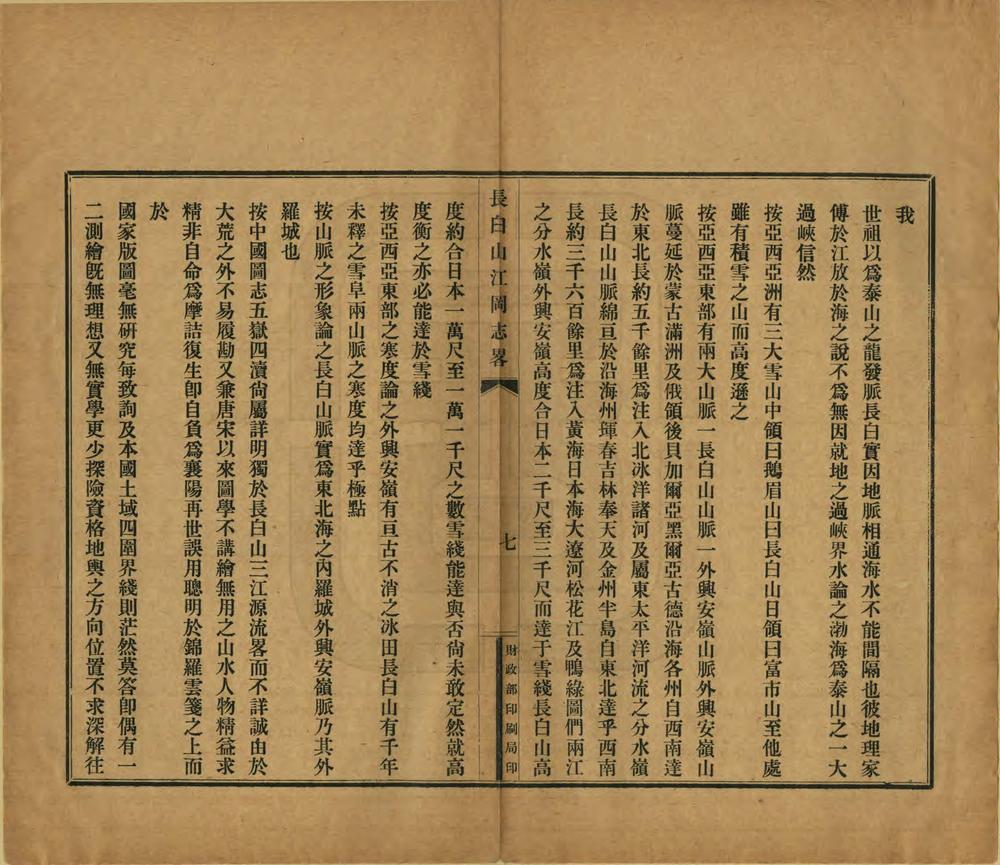 我
世祖以爲泰山之龍發脈長白實因地脈相通海水不能間隔也彼地理家
傅於江放於海之說不爲無因就地之過峽界水論之渤海爲泰山之一大
過峽信然
按亞西亞洲有三大雪山中領曰鵝眉山曰長白山日領曰富市山至他處
雖有積雪之山而高度遜之
按亞西亞東部有兩大山脈一長白山山脈一外興安嶺山脈外興安嶺山
脈蔓延於蒙古滿洲及俄領後貝加爾亞黑爾亞古德沿海各州自西南達
於東北長約五千餘里爲注入北冰洋諸河及屬東太平洋河流之分水嶺
長白山山脈綿亘於沿海州琿春吉林奉天及金州半島自東北達乎西南
長約三千六百餘里爲注入黃海日本海大遼河松花江及鴨綠圖們兩江
之分水嶺外興安嶺高度合日本二千尺至三千尺而達于雪綫長白山高
長白山江岡志畧
七
財政部印刷局印
度約合日本一萬尺至一萬一千尺之數雪綫能達與否尙未敢定然就高
度衡之亦必能達於雪綫
按亞西亞東部之寒度論之外興安嶺有亘古不消之冰田長白山有千年
未釋之雪阜兩山脈之寒度均達乎極點
按山脈之形象論之長白山脈實爲東北海之內羅城外興安嶺脈乃其外
羅城也
按中國圖志五嶽四瀆尙屬詳明獨於長白山三江源流畧而不詳誠由於
大荒之外不易履勘又兼唐宋以來圖學不講繪無用之山水人物精益求
精非自命爲摩詰復生卽自負爲襄陽再世誤用聰明於錦羅雲箋之上而
於
國家版圖毫無研究每致詢及本國土域四圍界綫則茫然莫答卽偶有一
二測繪旣無理想又無實學更少探險資格地輿之方向位置不求深解往